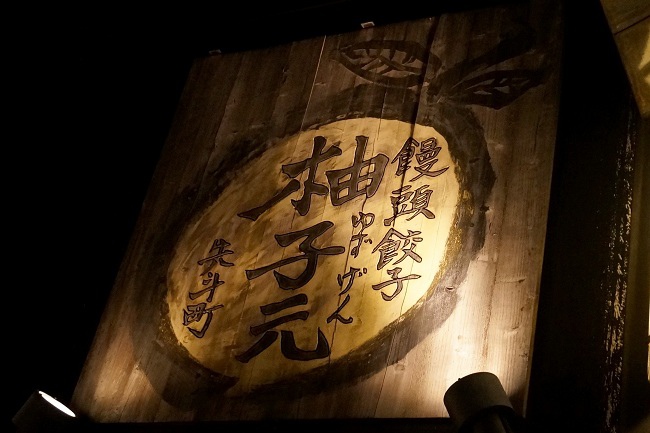 饅頭餃子
柚子元
ゆずげん
先斗町